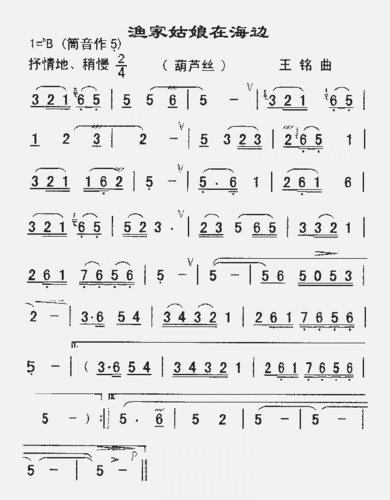 渔家姑娘在海边
1=♭B (筒音作5̣)
抒情地、稍慢 2/4 (葫芦丝) 王 铭 曲
3 2 1 6 5 | 5 5 | 5 - | 3 2 1 6 5 |
1 2 3 | 2 - | 5 3 2 3 | 2 6 5 1 |
3 2 1 1 6 2 | 5 - | 5 . 6 1 | 2 6 1 6 |
3 2 1 6 5 | 5 2 3 . | 2 3 5 6 5 | 3 3 2 1 |
2 6 1 7 6 5 6 | 5 - | 5 - | 5 6 5 0 5 3 |
2 - | 3·6 5 4 | 3 4 3 2 1 | 2 6 1 7 6 5 6 |
1.
5 - | ( 3·6 5 4 | 3 4 3 2 1 | 2 6 1 7 6 5 6 |
2.
5 - ) :‖ 5 . 6 | 5 2 | 5 - | 5 - |
5 - | 5 - ‖
p